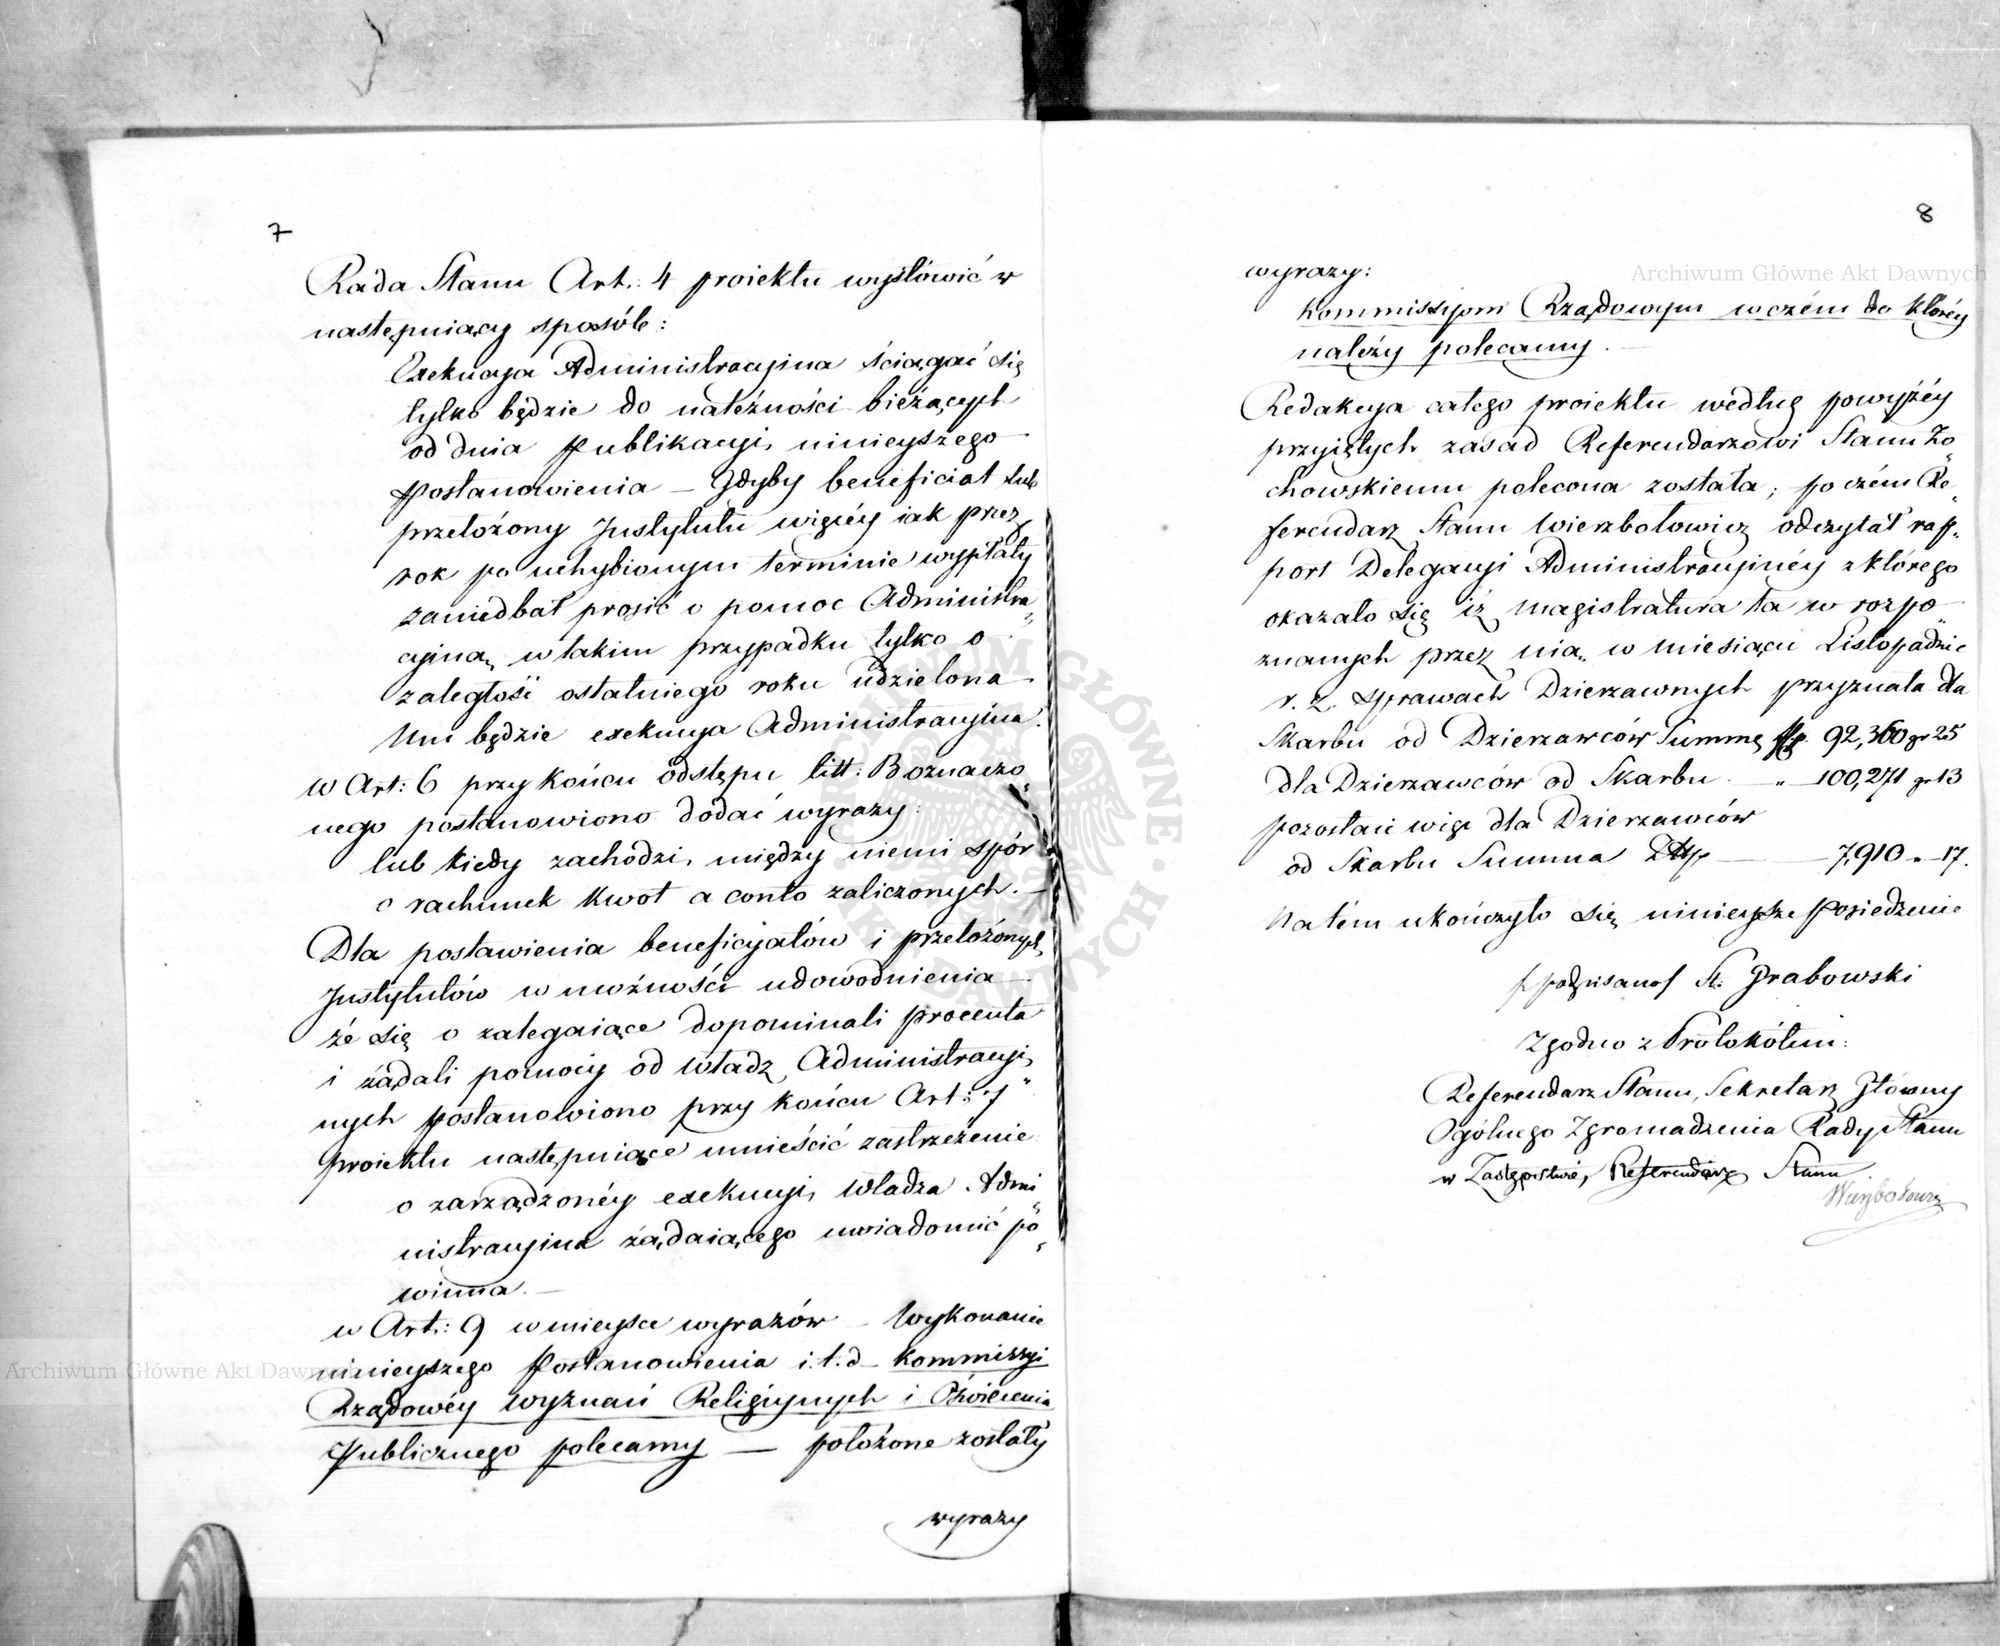 7
Rada Stanu Art: 4 proiektu wysłówić w
następuiący sposób:
Exekucya Administracyina ściągać się
tylko będzie do należności bieżących
od dnia Publikacyi, ninieyszego
Postanowienia — Gdyby beneficiat lub
przełożony Jnstytutu więcéy iak przez
rok po uchybionym terminie wypłaty
zaniedbał prosić o pomoc Administra„
cyiną, w takim przypadku tylko o
zaległość ostatniego roku udzielona
Mu będzie exekucya Administracyina.
w Art: 6 przy końcu odstępu litt: B oznaczo„
nego postanowiono dodać wyrazy:
lub kiedy zachodzi, między niemi spór
o rachunek kwot a conto zaliczonych. —
Dla postawienia beneficyatów i przełożonych
Jnstytutów w możności udowodnienia
że się o zalegaiące dopominali procenta
i żądali pomocy od Władz Administracyi„
nych postanowiono przy końcu Art: 7
proiektu następuiące umieścić zastrzeżenie
o zarządzonéy exekucyi, Władza Admi„
nistracyina żądaiącego uwiadomić po„
winna. —
w Art: 9 w mieysce wyrazów — Wykonanie
ninieyszego Postanowienia i. t. d — Kommissyi
Rządowéy Wyznań Religiynych i Oświecenia
Publicznego polecamy — położone zostały
wyrazy
8
wyrazy:
Kommissyom Rządowym w czém do któréy
należy polecamy. —
Redakcya całego proiektu według powyżéy
przyiętych zasad Referendarzowi Stanu Żo„
chowskiemu polecona została; po czém Re„
ferendarz Stanu Wierzbołowicz odczytał rap„
port Delegacyi Administracyinéy z którego
okazało się iż Magistratura ta w rozpo„
znanych przez nią, w miesiącu Listopadzie
r. z. sprawach Dzierzawnych przyznała dla
Skarbu od Dzierzawców Summę 92,360 gr 25
dla Dzierzawców od Skarbu — „ — 100,271 gr 13
pozostaie więc dla Dzierzawców
od Skarbu Summa Złp — 7,910 „ — 17.
Na tém ukończyło się ninieysze Posiedzenie
/ podpisano / St: Grabowski
Zgodno z Protokółem:
Referendarz Stanu, Sekretarz Główny
Ogólnego Zgromadzenia Rady Stanu
w Zastępstwie, Referendarz Stanu
Wierzbołowicz
Archiwum Główne Akt Dawnych
Archiwum Główne Akt Dawnych
ARCHIWUM GŁÓWNE AKT DAWNYCH